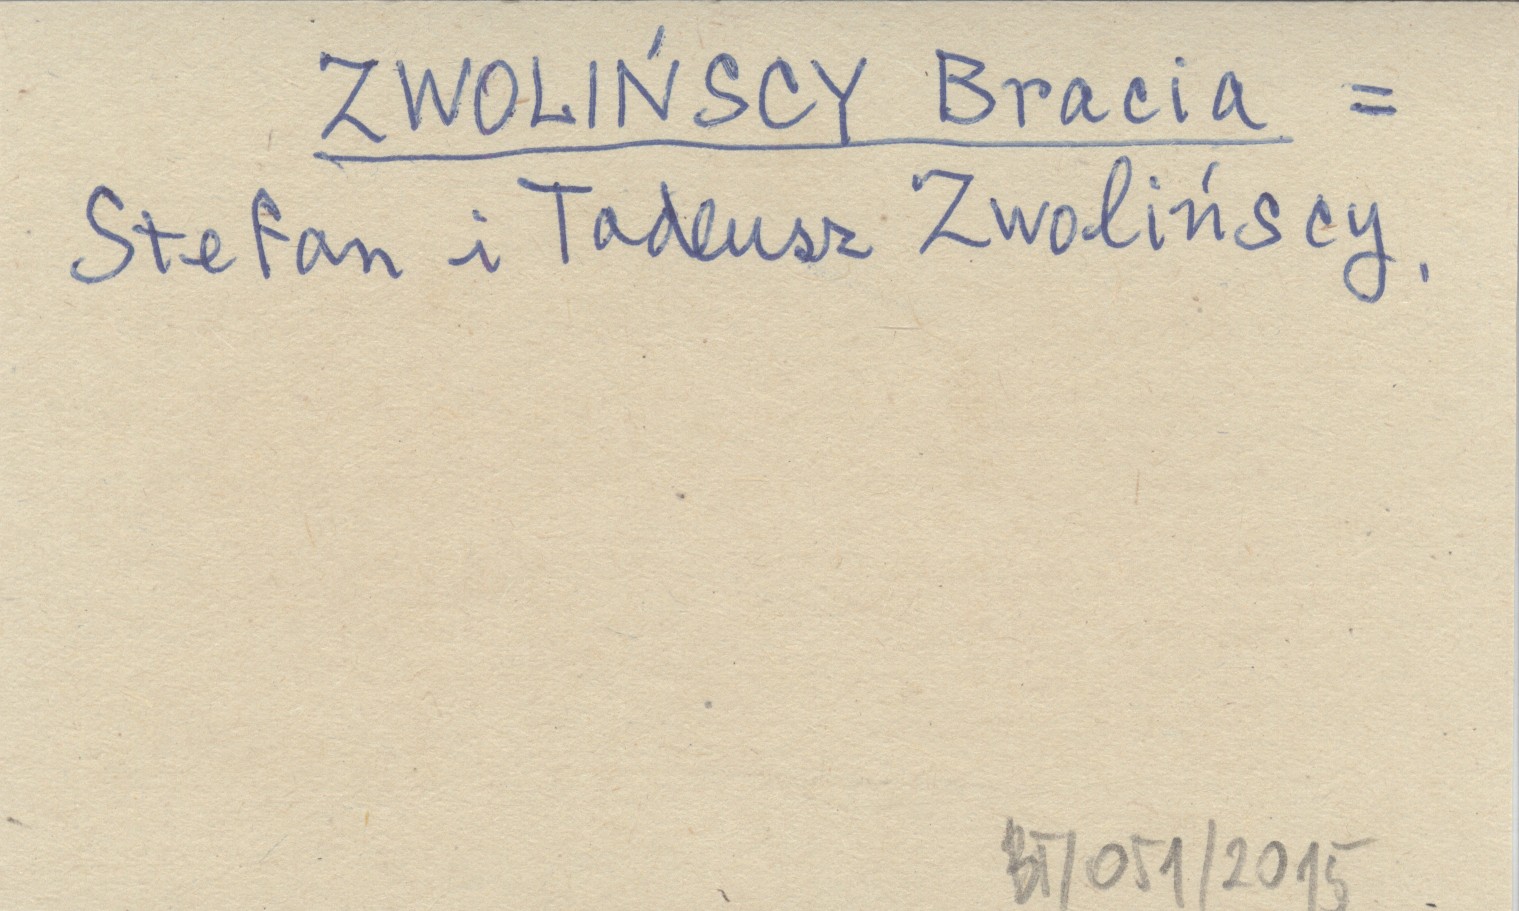 ZWOLIŃSCY Bracia =
Stefan i Tadeusz Zwolińscy.
BT/051/2015